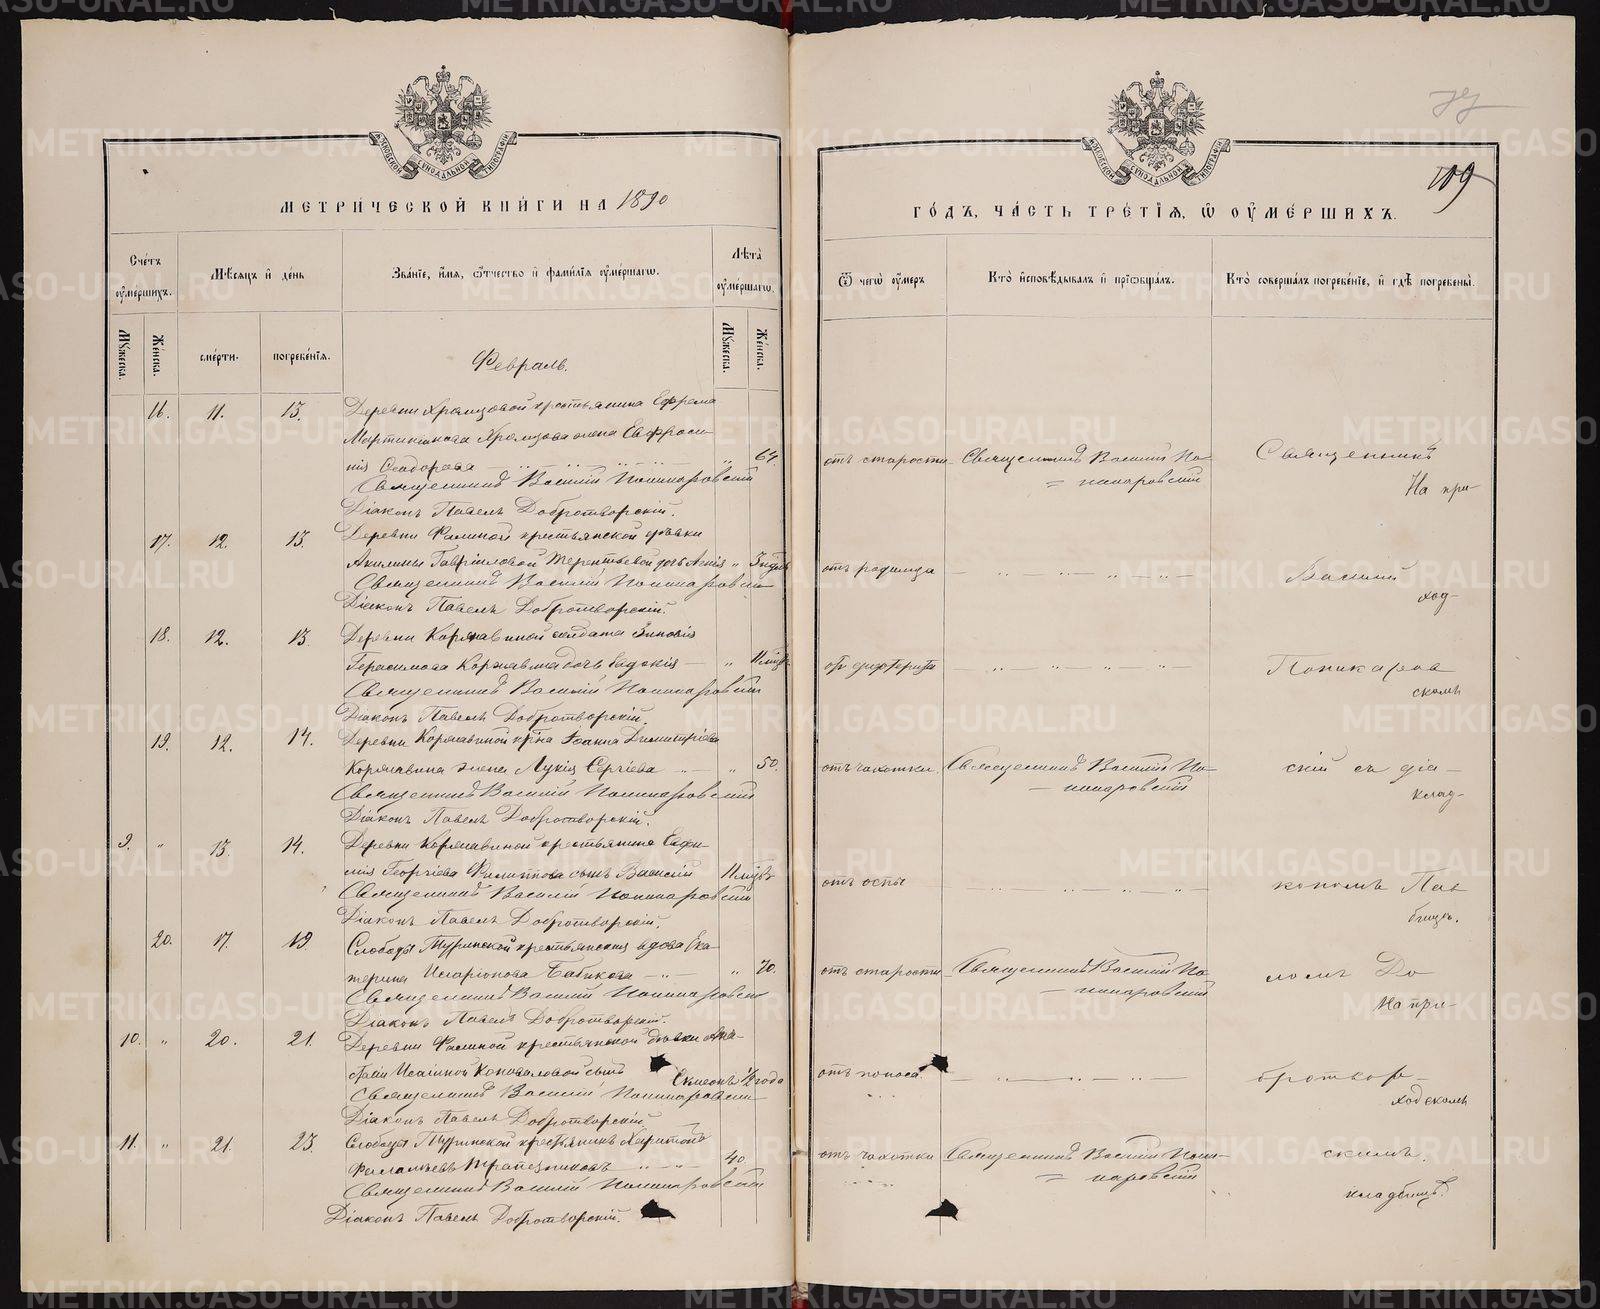 МЕТРИЧЕСКОЙ КНИГИ НА 1890
Счетъ умершихъ.
Мѣсяцъ и день
Званіе, имя, отчество и фамилія умершаго.
Лѣта умершаго.
Мужеска. Женска.
смерти. погребенія.
Мужеска. Женска.
Февраль.
16. 11. 13. Деревни Храмцовой крестьянина Ефрема
Мартиніанова Храмцова жена Евфроси-
нія Ѳеодорова " 64.
Священникъ Василій Поникаровскій
Діаконъ Павелъ Добротворскій.
17. 12. 13. Деревни Фалиной крестьянской дѣвки
Акилины Гавріиловой Терентьевой дочь "
Священникъ Василій Поникаровскій
Діаконъ Павелъ Добротворскій.
18. 12. 13. Деревни Коржавиной солдата Зиновія
Герасимова Коржавина дочь Евдокія "
Священникъ Василій Поникаровскій
Діаконъ Павелъ Добротворскій.
19. 12. 14. Деревни Коржавиной Іоанна Димитріева
Коржавина жена Лукія Сергіева " 50.
Священникъ Василій Поникаровскій
Діаконъ Павелъ Добротворскій.
9. " 13. 14. Деревни Коржавиной крестьянина Евфи-
мія Георгіева Филиппова сынъ Василій
Священникъ Василій Поникаровскій
Діаконъ Павелъ Добротворскій.
20. 17. 19. Слободы Туринской крестьянская вдова Ека-
терина Иларіонова Бабикова " 70.
Священникъ Василій Поникаровскій
Діаконъ Павелъ Добротворскій.
10. " 20. 21. Деревни Фалиной крестьянской дѣвки
Коноваловой сынъ Симеонъ 1/2 года
Священникъ Василій Поникаровскій
Діаконъ Павелъ Добротворскій
11. " 21. 23. Слободы Туринской крестьянинъ Харитонъ
Трапезниковъ 40.
Священникъ Василій Поникаровскій
Діаконъ Павелъ Добротворскій.
109
ГОДЪ, ЧАСТЬ ТРЕТІЯ, Ѡ ОУМЕРШИХЪ.
Ѿ чегѡ умеръ
Кто исповѣдывалъ и пріобщалъ.
Кто совершалъ погребеніе, и гдѣ погребены.
отъ старости Священникъ Василій По- Священникъ
= никаровскій На при-
отъ родимца Василій
ход-
отъ дифтерита Поникаров
скомъ
отъ чахотки Священникъ Василій По- скій съ діа-
- никаровскій клад-
отъ оспы кономъ Пав-
бищѣ.
отъ старости Священникъ Василій По- ломъ До
= никаровскій На при-
отъ поноса бротвор-
ходскомъ
отъ чахотки Священникъ Василій Пони- скимъ.
= каровскій кладбищѣ.
METRIKI.GASO-URAL.RU